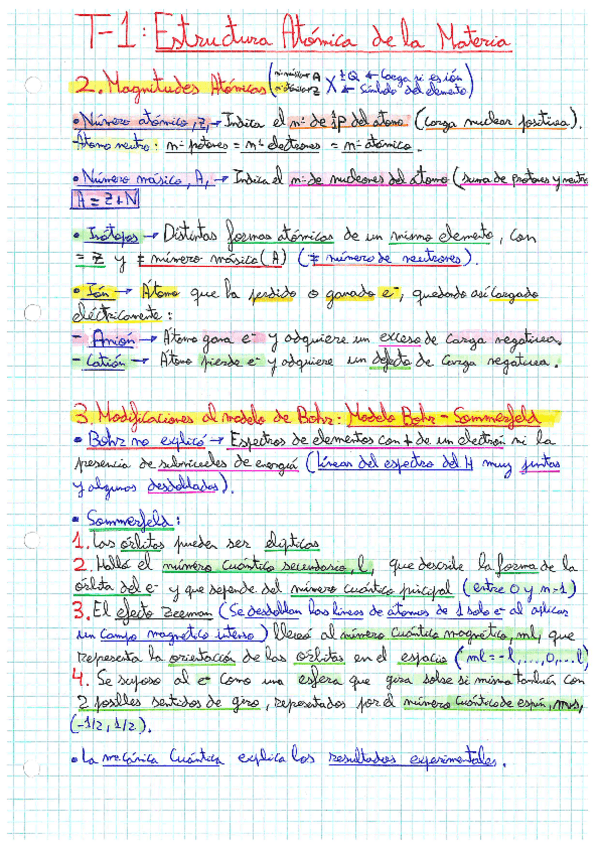 T-1: Estructura Atómica de la Materia
2. Magnitudes Atómicas (nº másico← A X ±Q ← Carga si es ión
nº atómico← Z ← Símbolo del elemento)
• Número atómico, Z, → Indica el nº de p del átomo (carga nuclear positiva).
Átomo neutro: nº protones = nº electrones = nº atómico.
• Número másico, A, → Indica el nº de nucleones del átomo (suma de protones y neutro
A = Z + N
• Isótopos → Distintas formas atómicas de un mismo elemento, con
= Z y ≠ número másico (A) (≠ número de neutrones).
• Ión → Átomo que ha perdido o ganado e⁻, quedando así cargado
eléctricamente:
- Anión → Átomo gana e⁻ y adquiere un exceso de carga negativa.
- Catión → Átomo pierde e⁻ y adquiere un defecto de carga negativa.
3. Modificaciones al modelo de Bohr: Modelo Bohr - Sommerfeld
• Bohr no explicó → Espectros de elementos con + de un electrón ni la
presencia de subniveles de energía (líneas del espectro del H muy juntas
y algunas desdobladas).
• Sommerfeld:
1. Las órbitas pueden ser elípticas
2. Halló el número cuántico secundario, l, que describe la forma de la
órbita del e⁻ y que depende del número cuántico principal (entre 0 y n-1)
3. El efecto Zeeman (Se desdoblan las líneas de átomos de 1 solo e⁻ al aplicar
un campo magnético intenso) llevó al número cuántico magnético, ml, que
representa la orientación de las órbitas en el espacio (ml = -l, ..., 0, ... l)
4. Se supuso al e⁻ como una esfera que gira sobre si misma también con
2 posibles sentidos de giro, representados por el número cuántico de espín, ms,
(-1/2, 1/2).
• La mecánica cuántica explica los resultados experimentales.